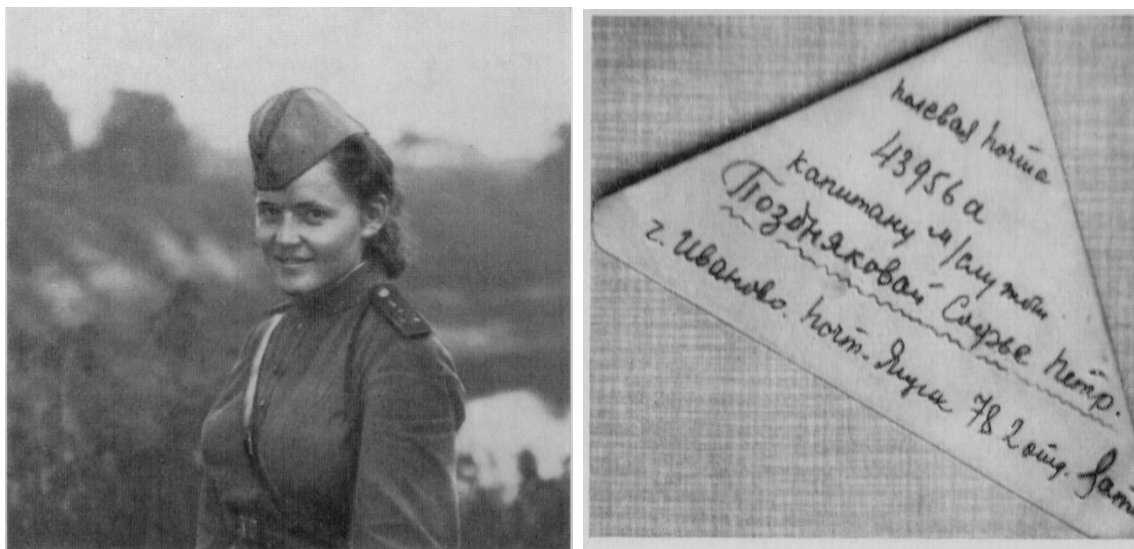 полевая почта
43956а
капитану м/службы
Поздняковой Софье Петр.
г. Иваново. почт. Ящик 78 2 отд.